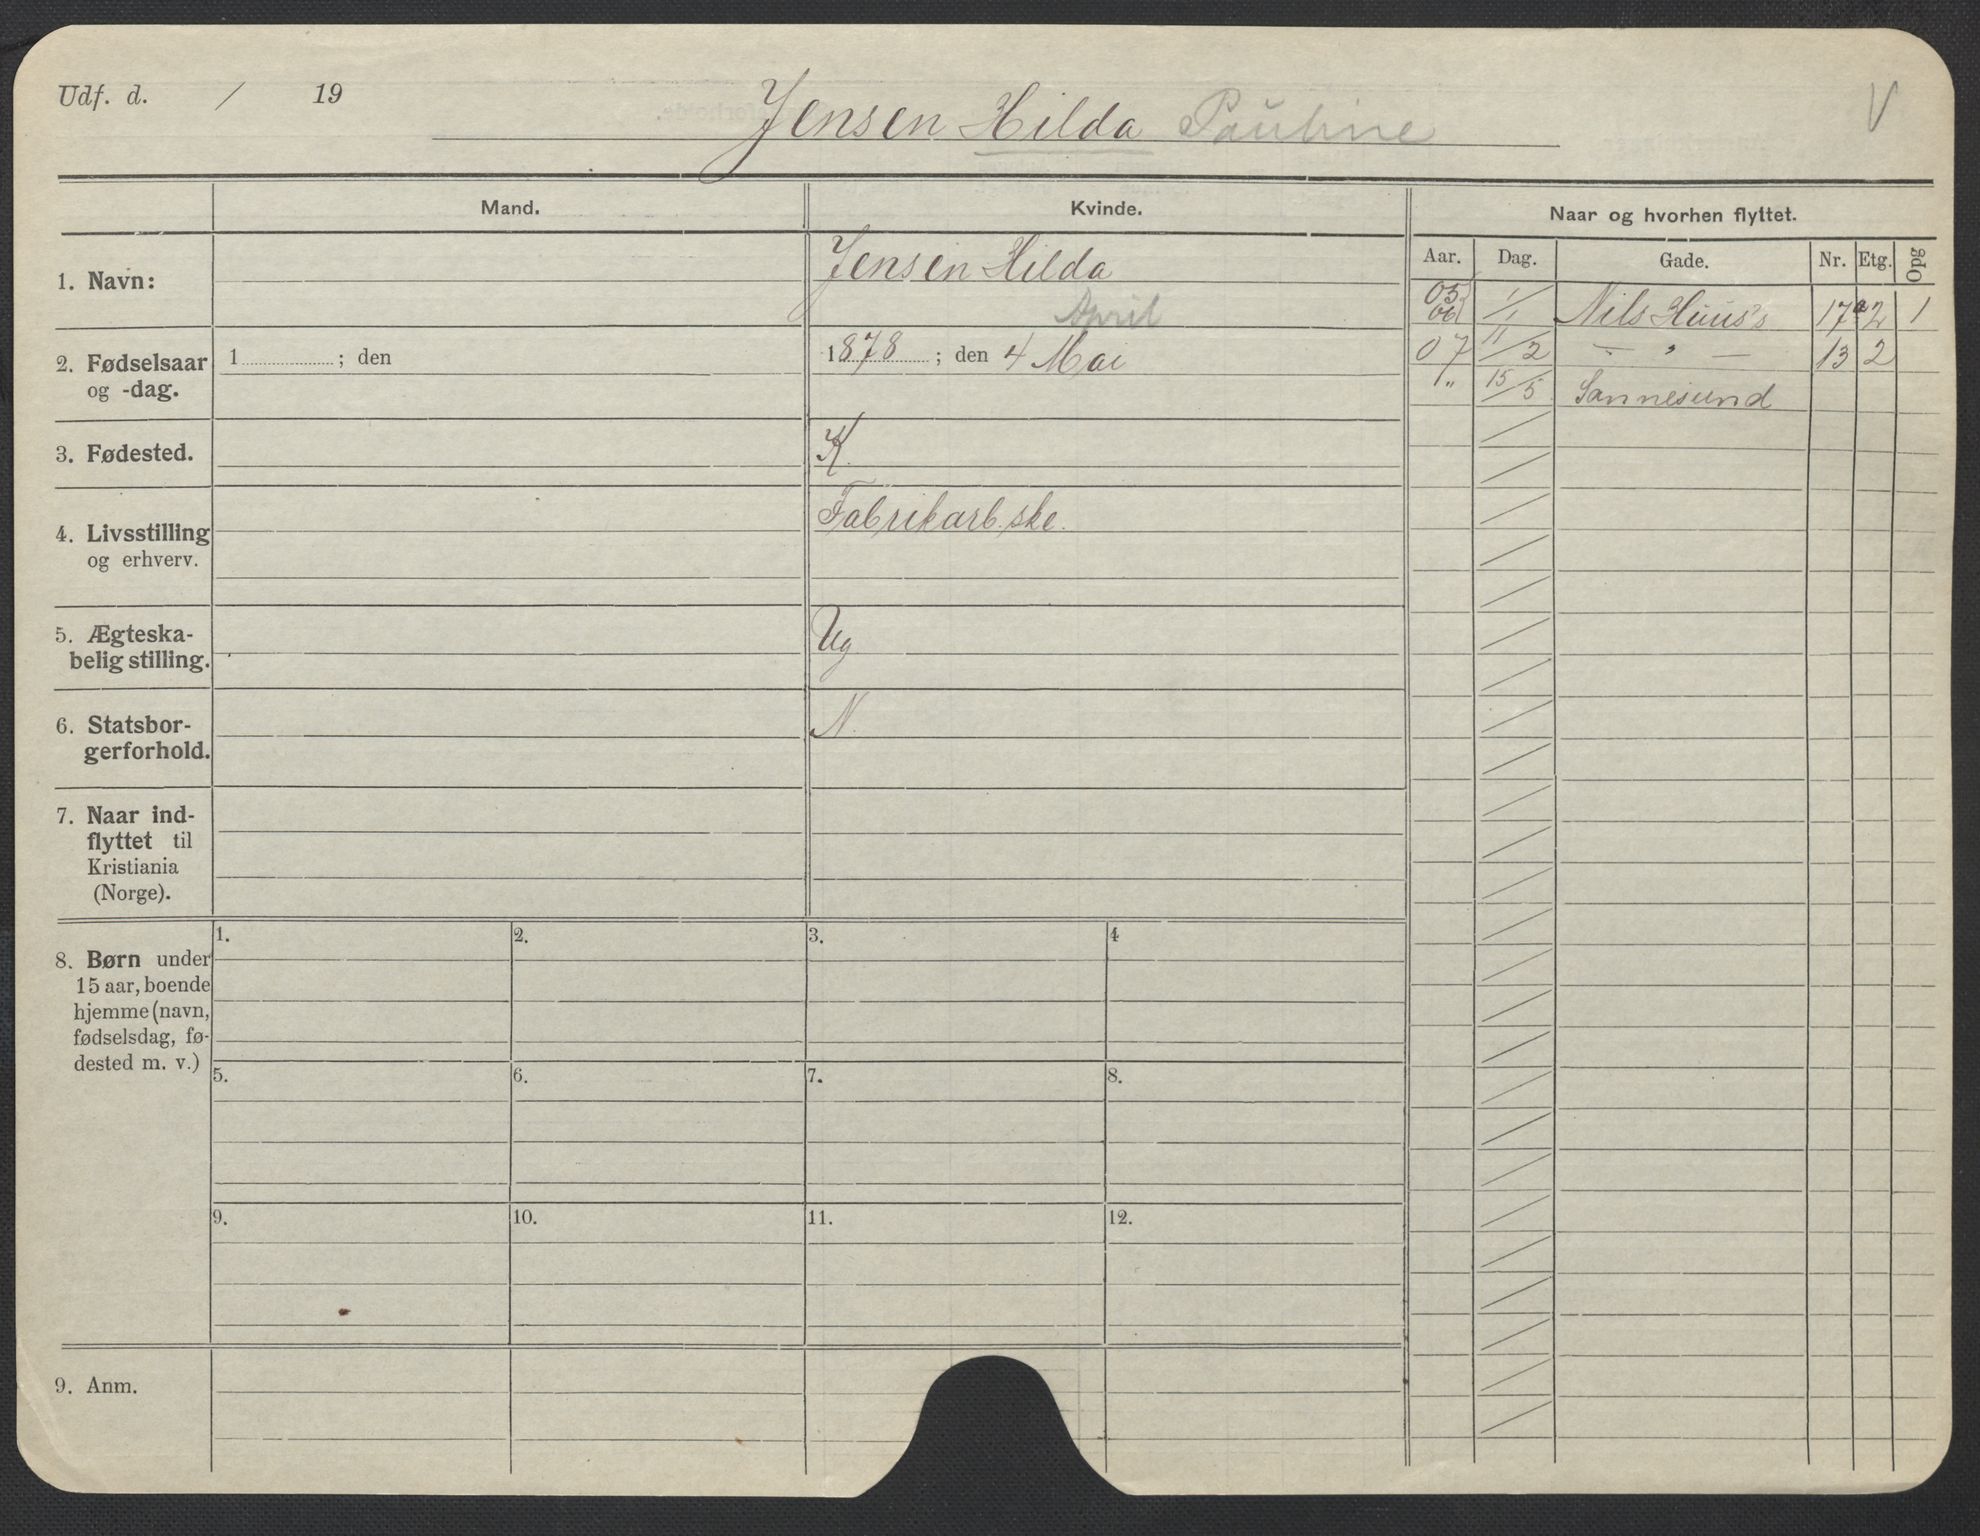 Udf. d. / 19
Jensen Hilda Pauline
V
Mand.
Kvinde.
Naar og hvorhen flyttet.
Aar. Dag. Gade. Nr. Etg. Opg
1. Navn:
Jensen Hilda
05 1/1 Nils Huus's 17a 2 1
06
April
2. Fødselsaar
og -dag.
1 ; den
1878 ; den 4 Mai
07 11/2 — " — 13 2
" 15/5 Sannesund
3. Fødested.
K.
4. Livsstilling
og erhverv.
Fabrikarb.ske.
5. Ægteska-
belig stilling.
Ug
6. Statsbor-
gerforhold.
N.
7. Naar ind-
flyttet til
Kristiania
(Norge).
8. Børn under
15 aar, boende
hjemme (navn,
fødselsdag, fø-
dested m. v.)
1. 2. 3. 4
5. 6. 7. 8.
9. 10. 11. 12.
9. Anm.